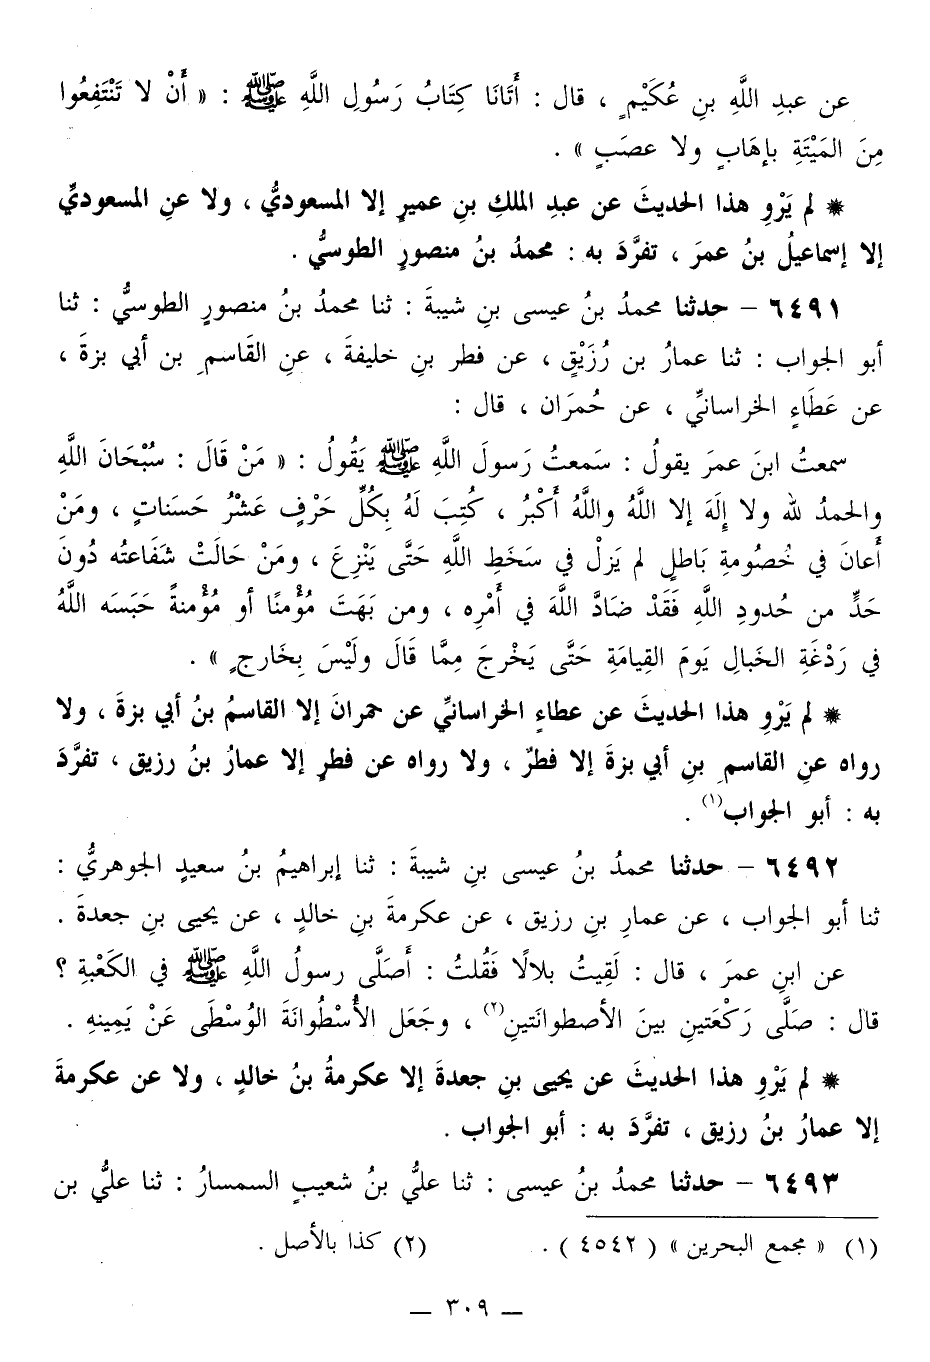 عن عبدِ اللَّهِ بنِ عُكَيْمٍ ، قال : أَتَانَا كِتَابُ رَسُولِ اللَّهِ ﷺ : « أَنْ لا تَنْتَفِعُوا
مِنَ المَيْتَةِ بإهَابٍ ولا عصَبٍ » .
* لم يَرْوِ هذا الحديثَ عن عبدِ الملكِ بنِ عميرٍ إلا المسعوديُّ ، ولا عنِ المسعوديِّ
إلا إسماعيلُ بنُ عمرَ ، تفرَّدَ به : محمدُ بنُ منصورٍ الطوسيُّ .
٦٤٩١ - حدثنا محمدُ بنُ عيسى بنِ شيبةَ : ثنا محمدُ بنُ منصورٍ الطوسيُّ : ثنا
أبو الجواب : ثنا عمارُ بن رُزَيْقٍ ، عن فطر بنِ خليفةَ ، عنِ القَاسمِ بن أبي بزةَ ،
عن عَطَاءٍ الخراسانيِّ ، عن حُمرَان ، قال :
سمعتُ ابنَ عمرَ يقولُ : سَمعتُ رَسولَ اللَّهِ ﷺ يَقُولُ : « مَنْ قَالَ : سُبْحَانَ اللَّهِ
والحمدُ لله ولا إِلَهَ إلا اللَّهُ واللَّهُ أَكْبرُ ، كُتِبَ لَهُ بِكُلِّ حَرْفٍ عَشْرُ حَسَنَاتٍ ، ومَنْ
أَعانَ في خُصُومةِ بَاطلٍ لم يَزلْ في سَخَطِ اللَّهِ حَتَّى يَنْزِعَ ، ومَنْ حَالَتْ شَفَاعتُه دُونَ
حَدٍّ من حُدودِ اللَّهِ فَقَدْ ضَادَّ اللَّهَ في أَمْرِه ، ومن بَهَتَ مُؤْمنًا أو مُؤْمنةً حَبَسَه اللَّهُ
في رَدْغَةِ الخبالِ يَومَ القِيامَةِ حَتَّى يَخْرجَ مِمَّا قَالَ ولَيْسَ بِخَارجٍ » .
* لم يَرْوِ هذا الحديثَ عن عطاءٍ الخراسانيِّ عن حمرانَ إلا القاسمُ بنُ أبي بزةَ ، ولا
رواه عنِ القاسمِ بنِ أبي بزةَ إلا فطرٌ ، ولا رواه عن فطرٍ إلا عمارُ بنُ رزيق ، تفرَّدَ
به : أبو الجواب(١) .
٦٤٩٢ - حدثنا محمدُ بنُ عيسى بنِ شيبةَ : ثنا إبراهيمُ بنُ سعيدٍ الجوهريُّ :
ثنا أبو الجواب ، عن عمارِ بنِ رزيق ، عن عكرمةَ بنِ خالدٍ ، عن يحيى بنِ جعدةَ .
عن ابنِ عمرَ ، قال : لَقِيتُ بلالًا فَقُلتُ : أَصَلَّى رسولُ اللَّهِ ﷺ في الكَعْبةِ ؟
قال : صَلَّى رَكْعَتينِ بينَ الأصطوانَتينِ(٢) ، وجَعَل الأُسْطُوانَةَ الوُسْطَى عَنْ يَمِينهِ .
* لم يَرْوِ هذا الحديثَ عن يحيى بنِ جعدةَ إلا عكرمةُ بنُ خالدٍ ، ولا عن عكرمةَ
إلا عمارُ بنُ رزيق ، تفرَّدَ به : أبو الجواب .
٦٤٩٣ - حدثنا محمدُ بنُ عيسى : ثنا عليُّ بنُ شعيبٍ السمسارُ : ثنا عليُّ بن
(١) « مجمع البحرين » ( ٤٥٤٢ ) . (٢) كذا بالأصل .
— ٣٠٩ —